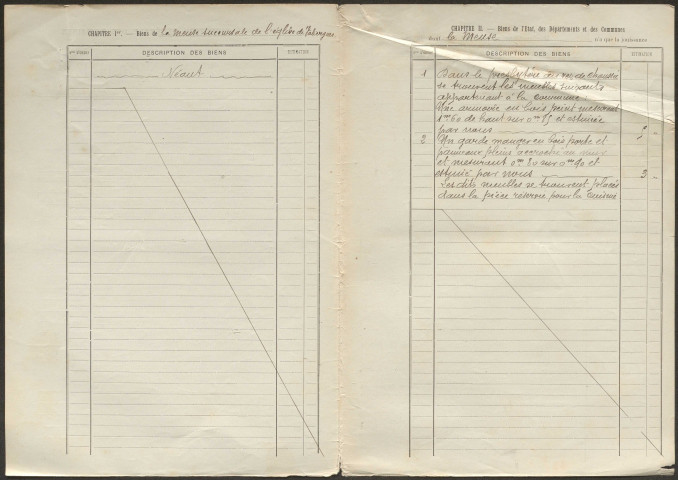 CHAPITRE Ier. — Biens de la mense succursale de l'église de
Nos D'ORDRE
DESCRIPTION DES BIENS
ESTIMATION
Néant
CHAPITRE II. — Biens de l'Etat, des Départements et des Communes
dont la Mense n'a que la jouissance
Nos D'ORDRE
DESCRIPTION DES BIENS
ESTIMATION
1 Dans le presbytère au rez de chaussée
se trouvent les meubles suivants
appartenant à la Commune:
Une armoire en bois peint mesurant
1m60 de haut sur 0m85 et estimée
par nous
2o Un garde manger en bois porte et
panneaux pleins accroché au mur
et mesurant 0m80 sur 0m90 et
estimé par nous 3 "
Les dits meubles se trouvent placés
dans la pièce réservée pour la cuisine